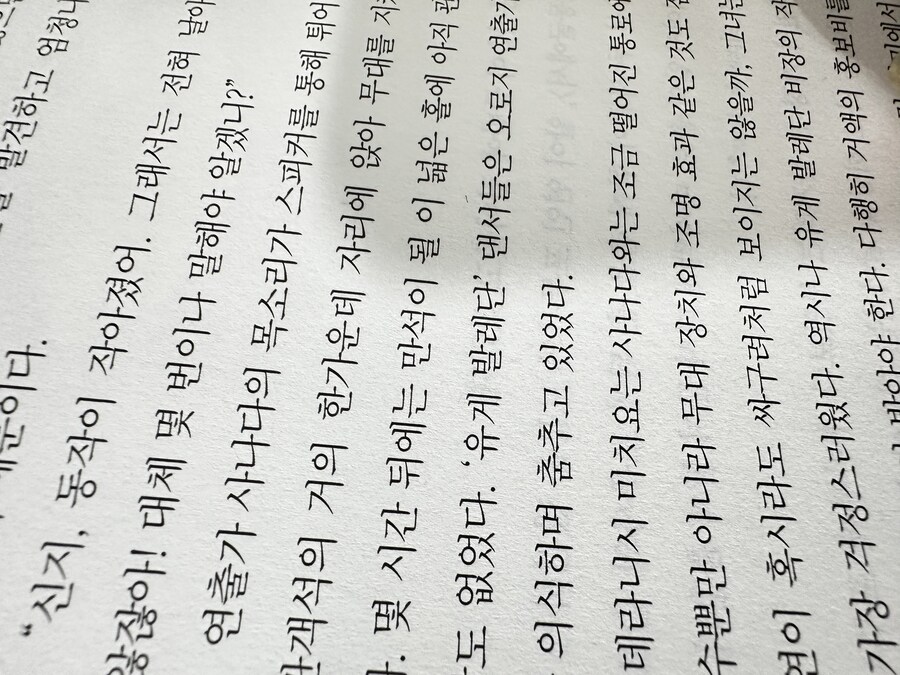 때문이다.
발견하고 엄청나
“신지, 동작이 작아졌어. 그래서는 전혀 날아
않잖아! 대체 몇 번이나 말해야 알겠니?”
연출가 사나다의 목소리가 스피커를 통해 튀어
관객석의 거의 한가운데 자리에 앉아 무대를
몇 시간 뒤에는 만석이 될 이 넓은 홀에 아직
도 없었다. ‘유게 발레단’ 댄서들은 오로지 연출가
의식하며 춤추고 있었다.
데라니시 미치요는 사나다와는 조금 떨어진 통로에
수뿐만 아니라 무대 장치와 조명 효과 같은 것도
연이 혹시라도 싸구려처럼 보이지는 않을까, 그녀는
가장 걱정스러웠다. 역시나 유게 발레단 비장의 작
받아야 한다. 다행히 거액의 홍보비를